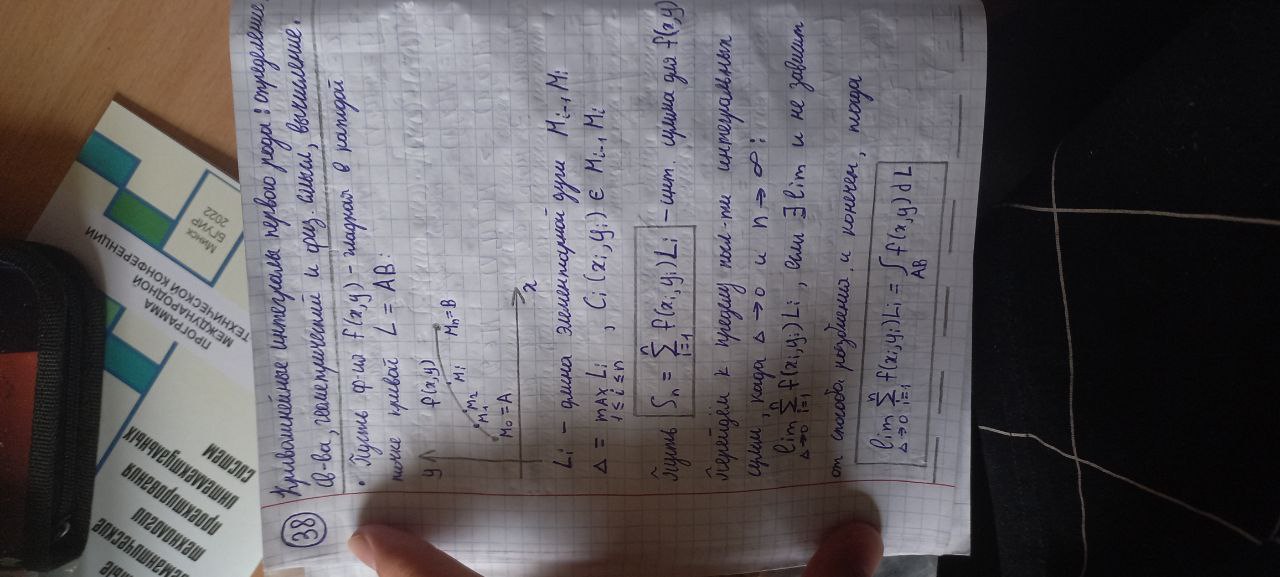 38
Криволинейные интегралы первого рода: определение,
св-ва, геометрический и физ. смысл, вычисление.
• Пусть ф-ия f(x,y) - гладкая в каждой
точке кривой L = AB:
y
f(x,y)
M₀=A
M₁
M₂
Mᵢ
Mₙ=B
x
Lᵢ - длина элементарной дуги Mᵢ₋₁Mᵢ
Δ = max Lᵢ , Cᵢ(xᵢ,yᵢ) ∈ Mᵢ₋₁Mᵢ
1≤i≤n
Пусть Sₙ = ∑ᵢ₌₁ⁿ f(xᵢ,yᵢ)Lᵢ - инт. сумма для f(x,y)
Перейдём к пределу посл-ти интегральных
сумм, када Δ→0 и n→∞:
lim Δ→0 ∑ᵢ₌₁ⁿ f(xᵢ,yᵢ)Lᵢ, если ∃ lim и не зависит
от способа разбиения. и конечен, тада
lim Δ→0 ∑ᵢ₌₁ⁿ f(xᵢ,yᵢ)Lᵢ = ∫AB f(x,y)dL
ПРОГРАММА
МЕЖДУНАРОДНОЙ
ТЕХНИЧЕСКОЙ КОНФЕРЕНЦИИ
МИНСК
БГУИР
2022
технологии
проектирования
интеллектуальных
систем